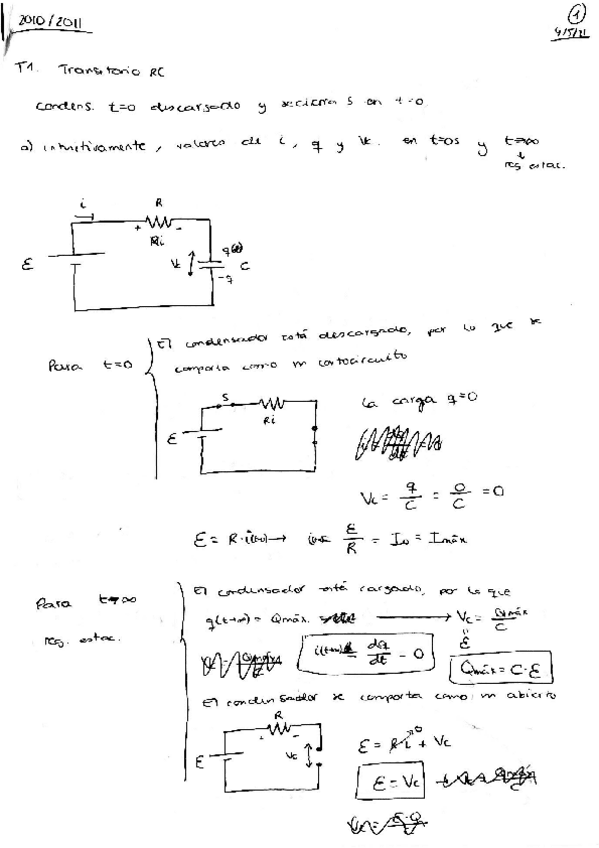 2010/2011
1
4/5/21
T1. Transitorio RC
Condens. t=0 descargado y se cierra S en t=0
a) intuitivamente, valores de i, q y Vc en t=0s y t→∞
reg. estac.
i
R
+ -
Ri
ε
Vc
q(t)
-q
C
Para t=0
El condensador está descargado, por lo que se
comporta como un cortocircuito
S
Ri
ε
La carga q=0
Vc = q/C = 0/C = 0
ε = R·i(t=0) → i = ε/R = I₀ = Imáx
Para t→∞
reg. estac.
El condensador está cargado, por lo que
q(t→∞) = Qmáx. → Vc = Qmáx/C
ε
i(t→∞) = dq/dt = 0
Qmáx = C·ε
El condensador se comporta como un abierto
R
+ -
ε
Vc
ε = Ri + Vc
0
ε = Vc